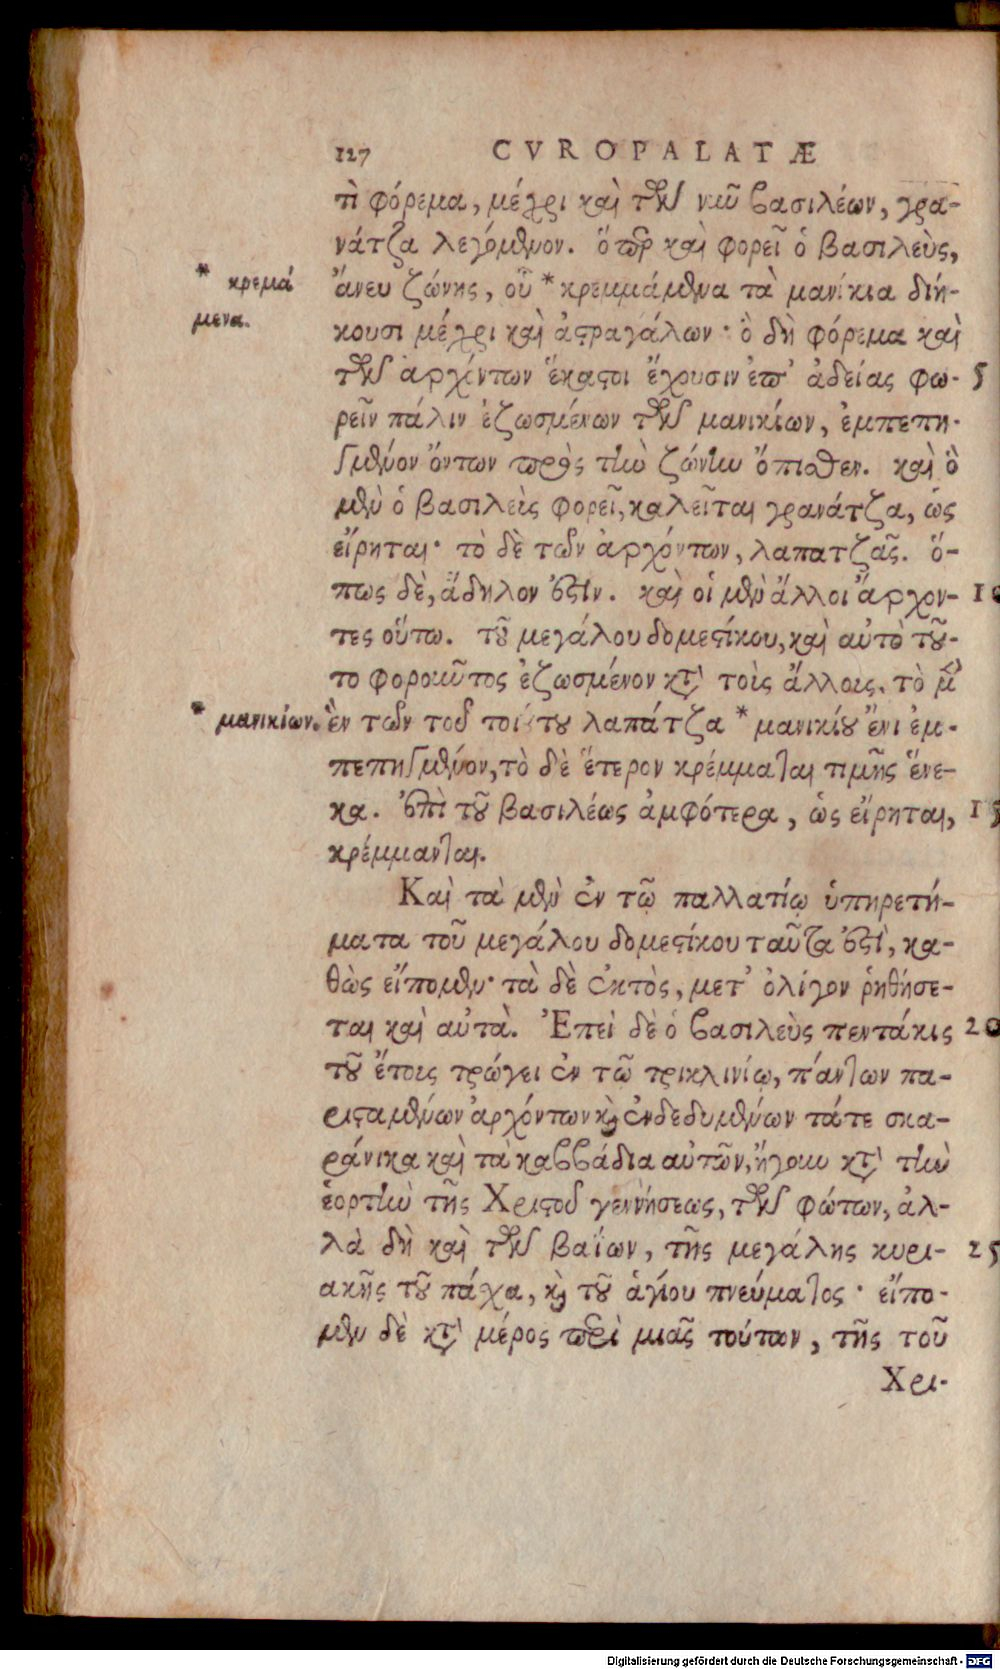 127 CVROPALATÆ
τὶ φόρεμα, μέχρι καὶ τῶν νῦν βασιλέων, γρα-
νάτζα λεγόμενον. ὅπερ καὶ φορεῖ ὁ βασιλεὺς,
* κρεμά
ἄνευ ζώνης, οὗ * κρεμμάμενα τὰ μανίκια διή-
μενα.
κουσι μέχρι καὶ ἀςραγάλων· ὃ δὴ φόρεμα καὶ
τῶν ἀρχόντων ἕκαςοι ἔχουσιν ἐπ' ἀδείας φω- 5
ρεῖν πάλιν ἐζωσμένων τῶν μανικίων, ἐμπεπη-
γμένον ὄντων πρὸς τὴν ζώνην ὄπισθεν. καὶ ὃ
μὲν ὁ βασιλεὶς φορεῖ, καλεῖται γρανάτζα, ὡς
εἴρηται· τὸ δὲ τῶν ἀρχόντων, λαπατζᾶς. ὅ-
πως δὲ, ἄδηλον ἐςὶν. καὶ οἱ μὲν ἄλλοι ἄρχον- 10
τες οὕτω. τοῦ μεγάλου δομεςίκου, καὶ αὐτὸ τοῦ-
το φοροῦντος ἐζωσμένον κατὰ τοὶς ἄλλοις. τὸ μὲν
* μανικίων. ἓν τῶν τοῦ τοιούτου λαπάτζα * μανικίου ἔνι ἐμ-
πεπηγμένον, τὸ δὲ ἕτερον κρέμμαται τιμῆς ἕνε-
κα. ἐπὶ τοῦ βασιλέως ἀμφότερα, ὡς εἴρηται, 15
κρέμμανται.
Καὶ τὰ μὲν ἐν τῷ παλλατίῳ ὑπηρετή-
ματα τοῦ μεγάλου δομεςίκου ταῦτα ἐςὶ, κα-
θὼς εἴπομεν· τὰ δὲ ἐκτὸς, μετ' ὀλίγον ῥηθήσε-
ται καὶ αὐτὰ. Ἐπεὶ δὲ ὁ βασιλεὺς πεντάκις 20
τοῦ ἔτοις τρώγει ἐν τῷ τρικλινίῳ, πάντων πα-
ριςαμένων ἀρχόντων καὶ ἐνδεδυμένων τάτε σκα-
ράνικα καὶ τὰ καββάδια αὐτῶν, ἤγουν κατὰ τὴν
ἑορτὴν τῆς Χριςοῦ γεννήσεως, τῶν φώτων, ἀλ-
λὰ δὴ καὶ τῶν βαΐων, τῆς μεγάλης κυρι- 25
ακῆς τοῦ πάσχα, καὶ τοῦ ἁγίου πνεύματος· εἴπο-
μεν δὲ κατὰ μέρος περὶ μιᾶς τούτων, τῆς τοῦ
Χρι-
Digitalisierung gefördert durch die Deutsche Forschungsgemeinschaft - DFG